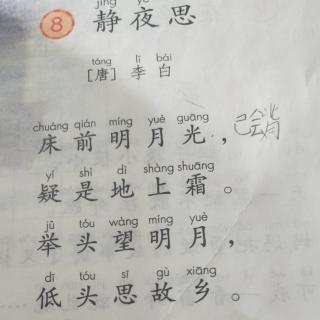 jìng yè
8 静夜思
táng lǐ bái
[唐] 李白
chuáng qián míng yuè guāng
床前明月光， 已会背
yí shì dì shàng shuāng
疑是地上霜。
jǔ tóu wàng míng yuè
举头望明月，
dī tóu sī gù xiāng
低头思故乡。